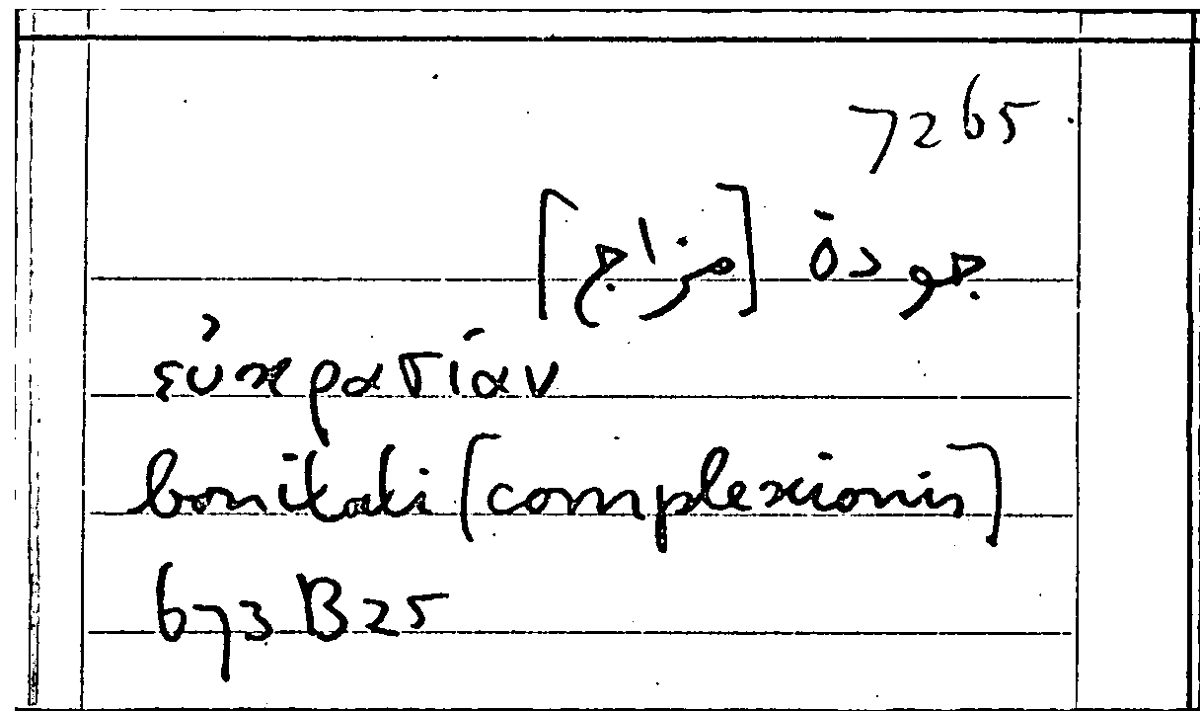 7265
جودة [مزاج]
εὐκρασίαν
bonitati [complexionis]
673 B 25